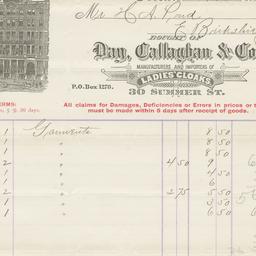 Mr H. A. Pond
E. Berkshire
BOUGHT OF
Day, Callaghan & Co
MANUFACTURERS AND IMPORTERS OF
LADIES CLOAKS
P.O. Box 1278. 30 SUMMER ST.
ERMS: All claims for Damages, Deficiencies or Errors in prices or
30 days. must be made within 5 days after receipt of goods.
1 Garments 8 50
1 " 8 50
1 " 8 50
2 " 4 50 9
1 " 4
1 " 6
2 " 2 75 5 50
1 " 5 50
1 " 3 50
1 " 6 50